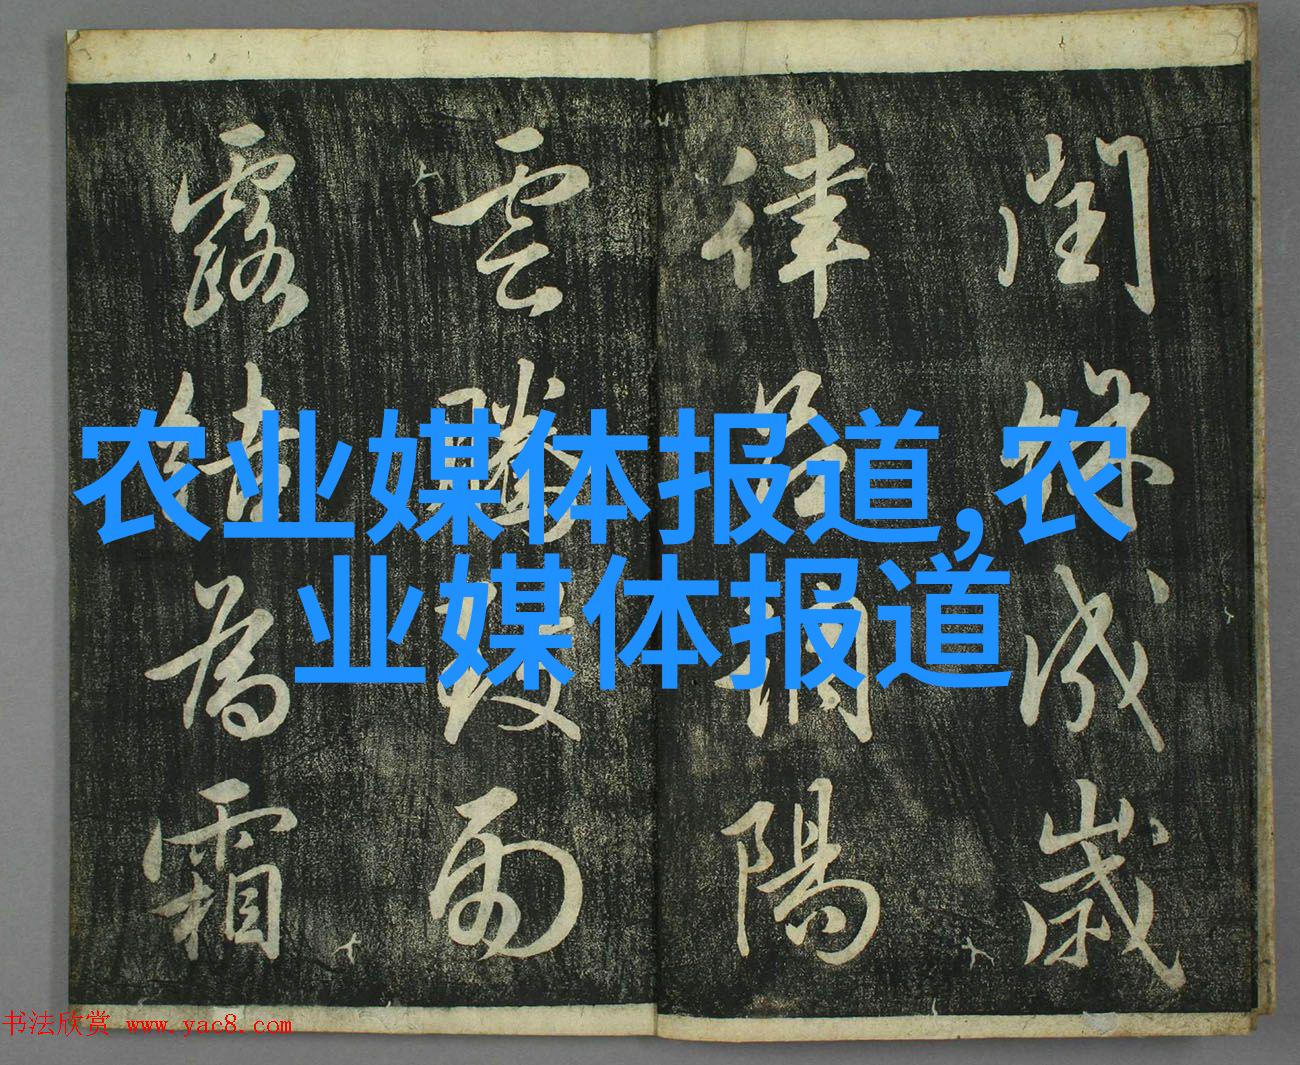 閏餘成歲
律呂調陽
雲騰致雨
露結為霜
农业媒体报道,农
业媒体报道
书法欣赏 www.yac8.com